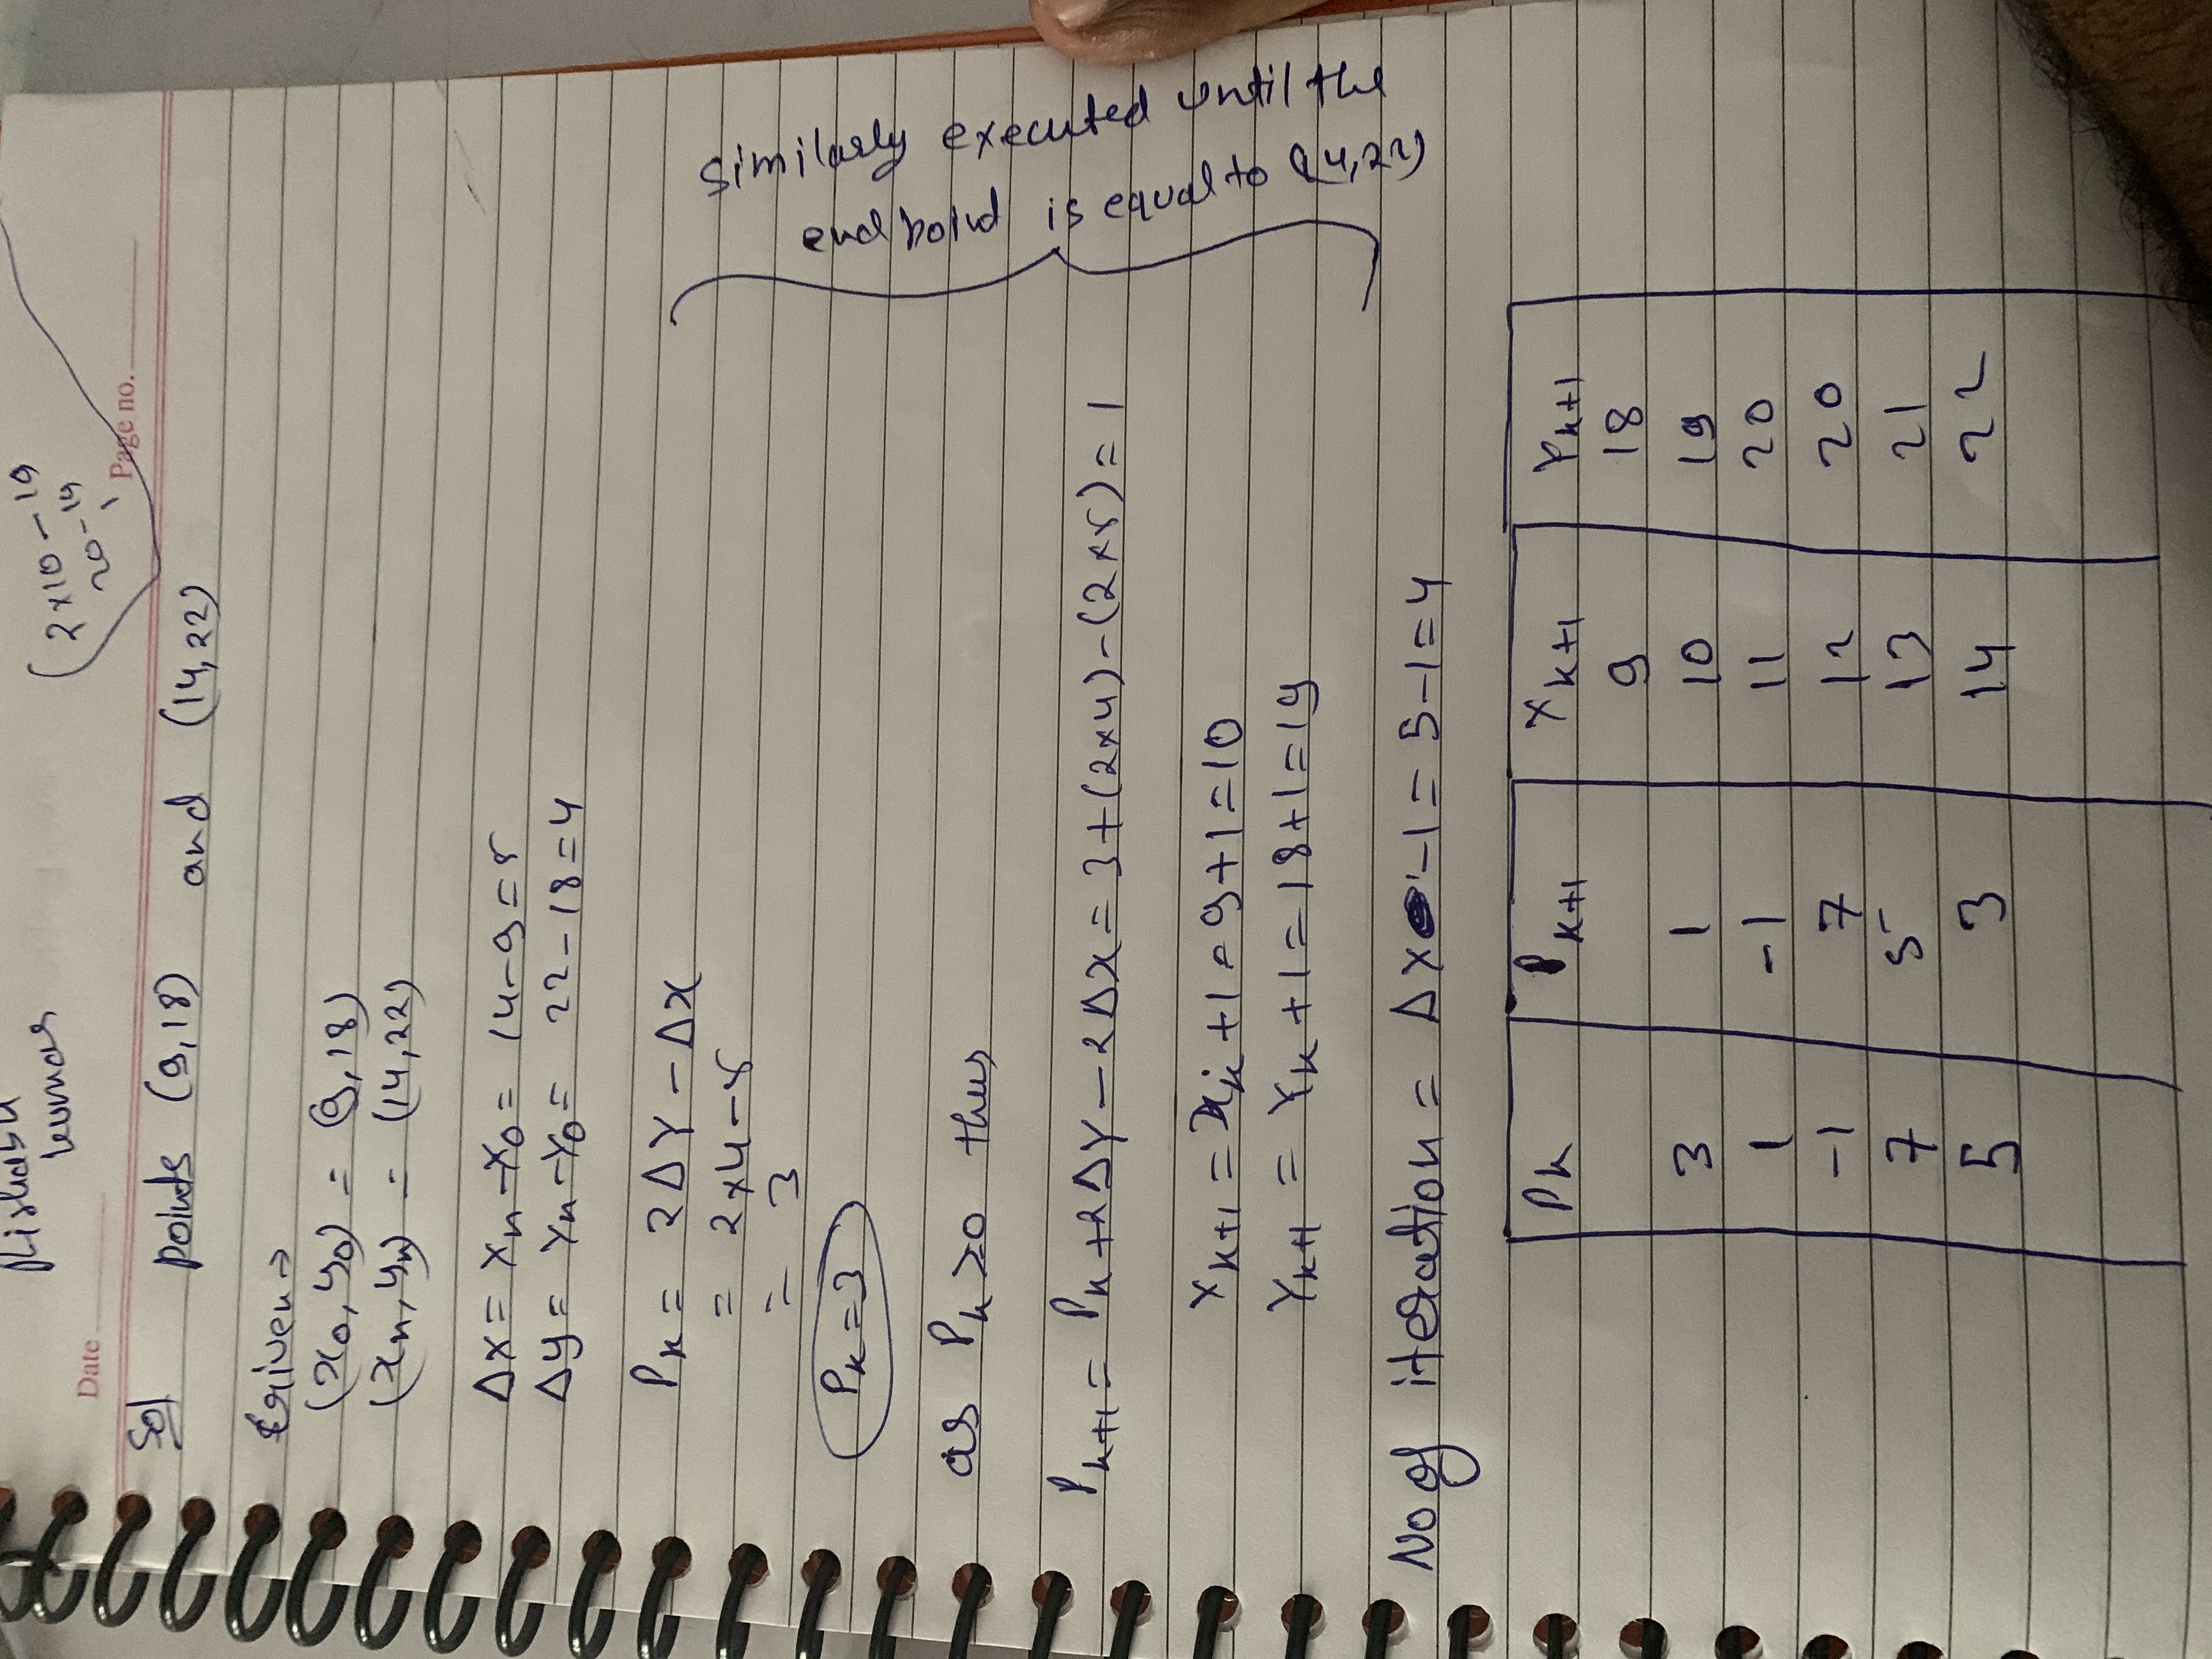 Rishabh
kumar
(2×10-19
20-19
1
Date
Page no.
Sol
points (9,18) and (14,22)
Given →
(x₀, y₀) = (9,18)
(xₙ, yₙ) = (14,22)
Δx = Xₙ - X₀ = 14-9=5
Δy = Yₙ - Y₀ = 22-18=4
Pₖ = 2ΔY - Δx
= 2×4-5
= 3
Pₖ=3
as Pₖ ≥0 thus
Pₖ₊₁ = Pₖ+2ΔY-2Δx = 3+(2×4)-(2×5)=1
Xₖ₊₁ = xₖ+1 = 9+1=10
Yₖ₊₁ = Yₖ+1 = 18+1=19
Similarly executed until the
end point is equal to (14,22)
No of iteration = ΔX -1 = 5-1=4
Pₖ Pₖ₊₁ Xₖ₊₁ Yₖ₊₁
9 18
3 1 10 19
1 -1 11 20
-1 7 12 20
7 5 13 21
5 3 14 22